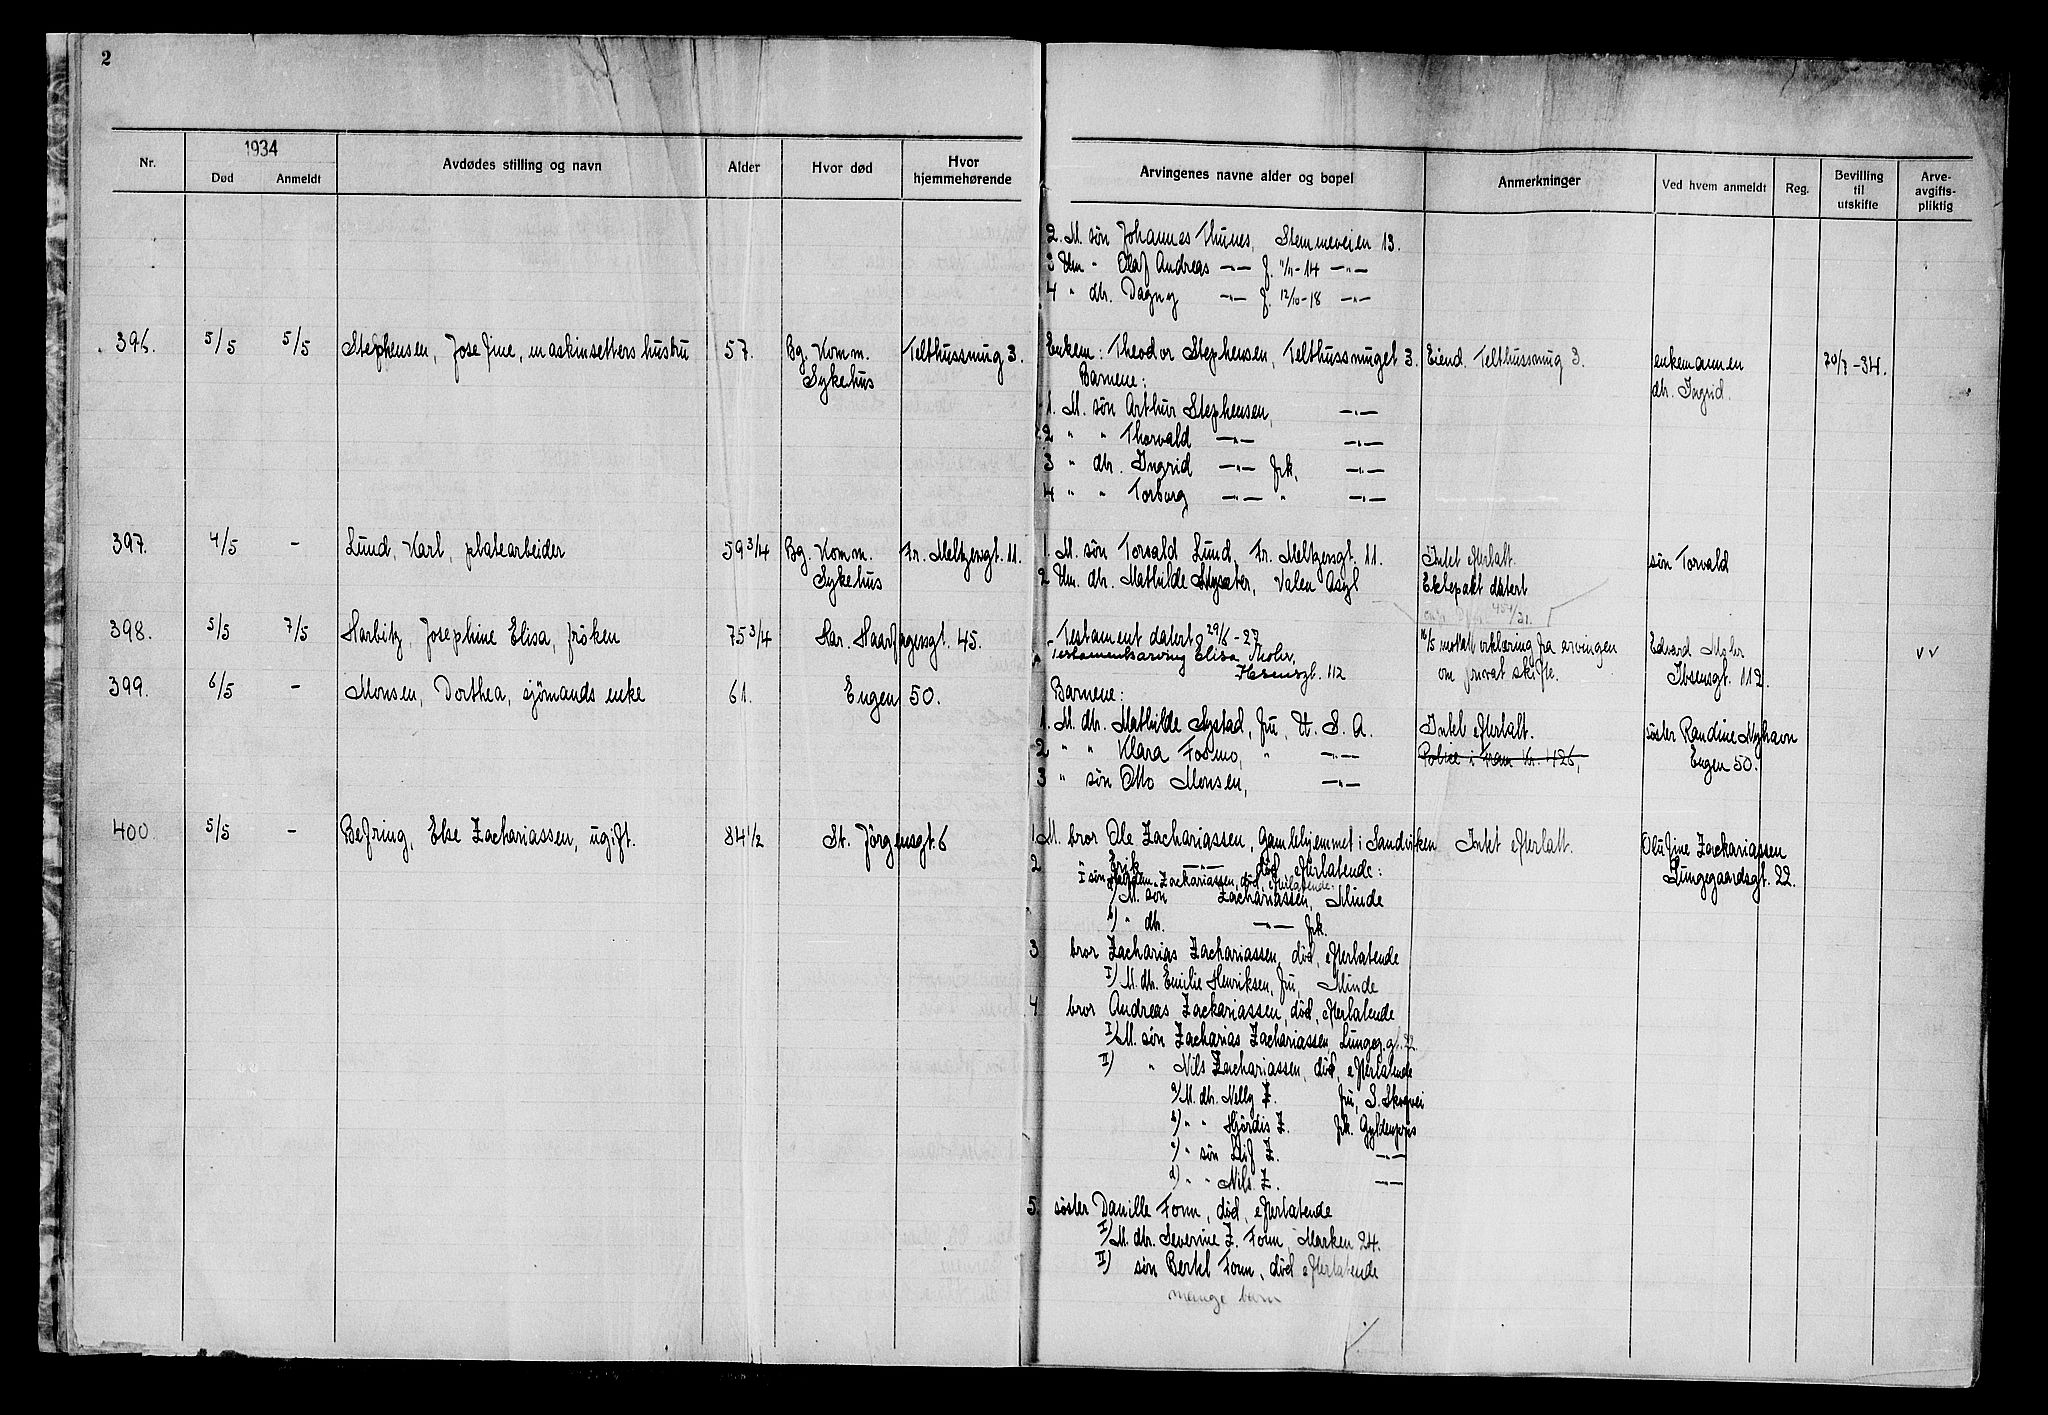 2
Nr. 1934 Død Anmeldt Avdødes stilling og navn Alder Hvor død Hvor hjemmehørende Arvingenes navne alder og bopel Anmerkninger Ved hvem anmeldt Reg. Bevilling til utskifte Arve-avgifts-pliktig
2. M. søn Johannes Thunes, Stemmeveien 13.
3 Um " Olaf Andreas —"— f. -14 —"—
4 " dtr. Dagny —"— f. 12/10-18 —"—
396. 5/5 5/5 Stephensen, Josefine, maskinsetters hustru 57. Bg. Komm. Telthussmug 3. Enkem: Theodor Stephensen, Telthussmuget 3. Eiend. Telthussmug 3. enkemannen 20/7-34.
Sykehus Barnene: dtr. Ingrid.
1. M. søn Arthur Stephensen, —"—
2 " " Thorvald —"— —"—
3 " dtr. Ingrid —"— frk, —"—
4 " " Torborg —"— " —"—
397. 4/5 - Lund, Karl, platearbeider 59 3/4 Bg. Komm. Fr. Meltzersgt. 11. 1. M. søn Torvald Lund, Fr. Meltzersgt. 11. Intet efterlatt. søn Torvald
Sykehus 2 Um. dtr. Mathilde Valen Asyl Ektepakt datert
398. 5/5 7/5 Harbitz, Josephine Elisa, frøken 75 3/4 Har. Haarfagersgt. 45. Testament datert 29/6-27 16/5 motatt erklæring fra arvingen Edvard Mohr vv
Testamentsarving Elisa Mohr,
Ibsensgt. 112 om privat skifte. Ibsensgt. 112.
399. 6/5 - Monsen, Dorthea, sjømands enke 61. Engen 50. Barnene:
1. M. dtr. Mathilde Systad, fru, U. S. A. Intet efterlatt. søster Randine Myhavn
2 " " Klara Formo, " —"— Police i Fram Kr. 426, Engen 50.
3 " søn Otto Monsen, —"—
400. 5/5 - Befring, Else Zachariassen, ugift. 84 1/2 St. Jørgensgt. 6 1. M. bror Ole Zachariassen, Gamlehjemmet i Sandviken Intet efterlatt. Olufine Zackariassen
2 Erik —"— død efterlatende: Lungegaardsgt. 22.
I søn Zackariassen, død, efterlatende:
a) M. søn Zachariassen, Minde
b) " dtr. —"— frk.
3 bror Zacharias Zachariassen, død, efterlatende
I) M. dtr. Emilie Henriksen, fru, Minde
4 bror Andreas Zackariassen, død, efterlatende
I) M. søn Zacharias Zachariassen Lungeg. gt. 22.
II) " Nils Zachariassen, død, efterlatende
a) M. dtr. Nelly Z. fru, S. Skogvei
b) " " Hjørdis Z. frk. Gyldenpris
c) " søn Leif Z. —"—
d) " " Nils Z. —"—
5. søster Danille Fonn, død, efterlatende
I) M. dtr. Severine Z. Fonn, Marken 24.
II) søn Bertel Fonn, død efterlatende
mange barn